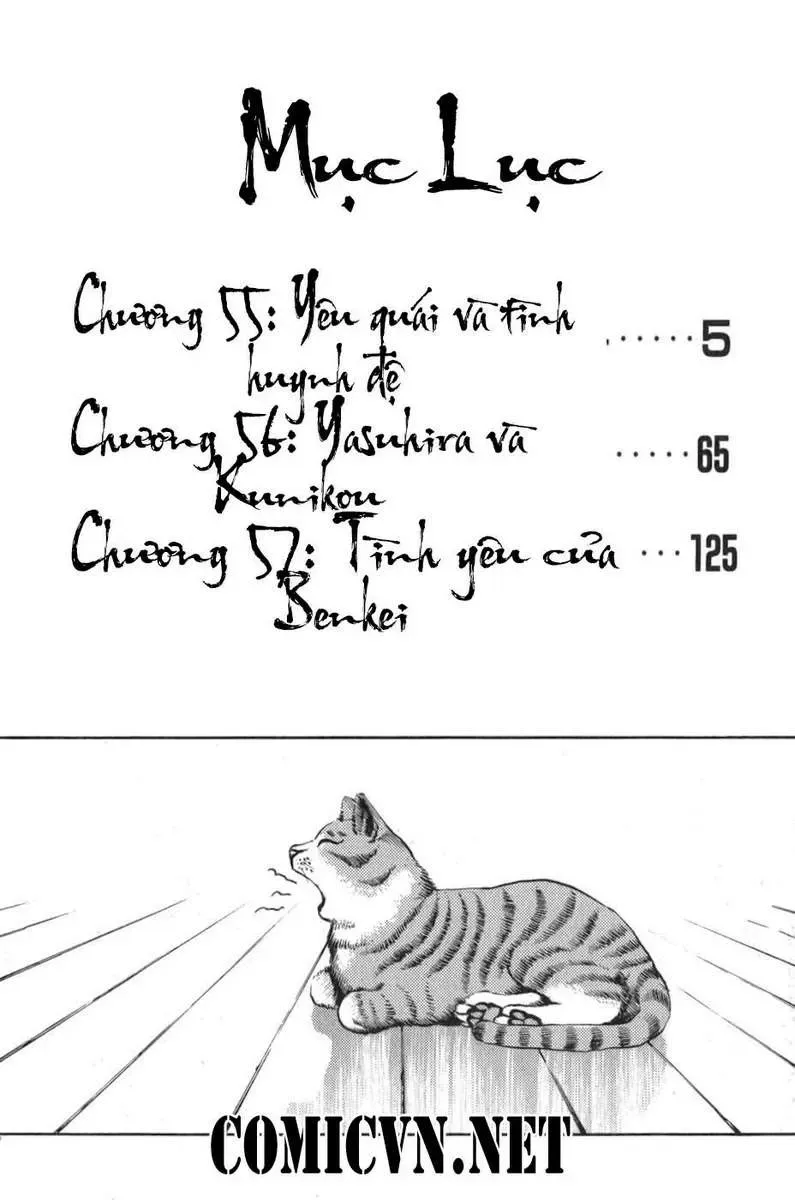 Mục Lục
Chương 55: Yêu quái và tình ......5
huynh đệ
Chương 56: Yasuhira và .....65
Kunikou
Chương 57: Tình yêu của ...125
Benkei
COMICVN.NET